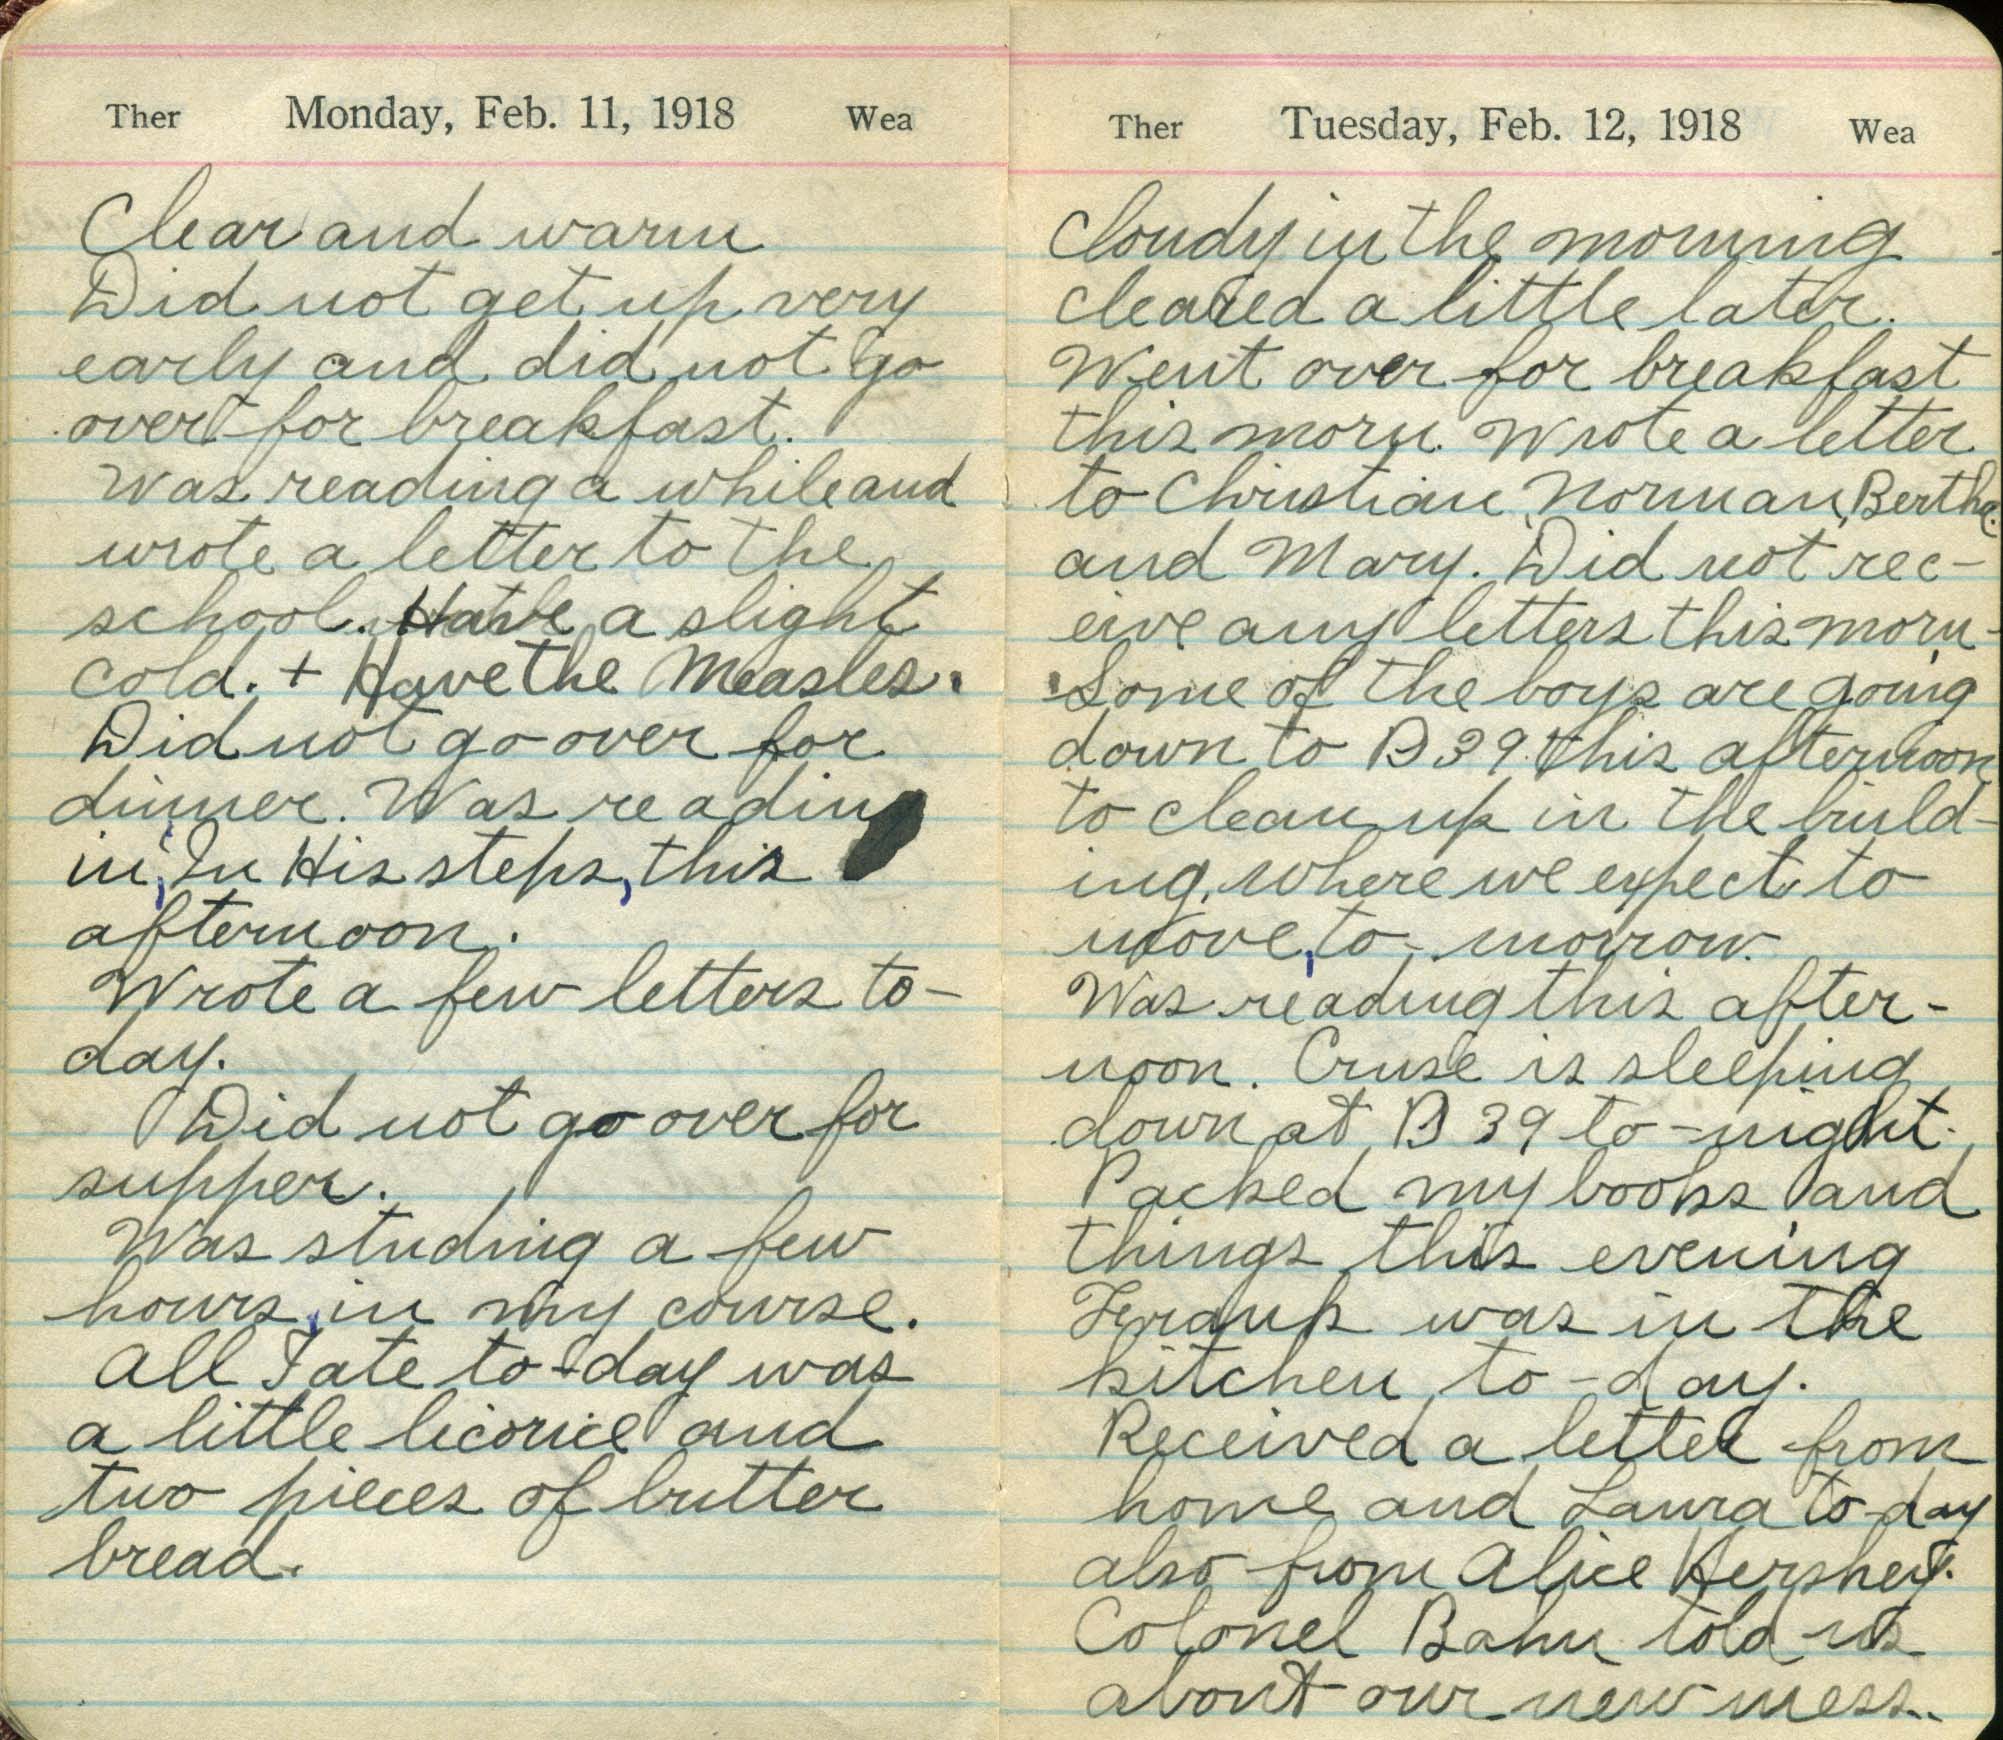 Ther Monday, Feb. 11, 1918 Wea
Clear and warm
Did not get up very
early and did not go
over for breakfast.
Was reading a while and
wrote a letter to the
school. Have a slight
cold. + Have the Measles.
Did not go over for
dinner. Was reading
in, In His steps, this
afternoon.
Wrote a few letters to-
day.
Did not go over for
supper.
Was studing a few
hours, in my course.
All I ate to-day was
a little licorice and
two pieces of butter
bread.
Ther Tuesday, Feb. 12, 1918 Wea
Cloudy in the morning
cleared a little later.
Went over for breakfast
this morn. Wrote a letter
to Christian, Norman, Bertha.
and Mary. Did not rec-
eive any letters this morn-
Some of the boys are going
down to B 39 this afternoon
to clean up in the build-
ing, where we expect to
move, to-morrow.
Was reading this after-
noon. Cruse is sleeping
down at B 39 to-night.
Packed my books and
things this evening
Frank was in the
kitchen to-day.
Received a letter from
home and Laura to-day
also from Alice Hershey.
Colonel Bahn told us
about our new mess..